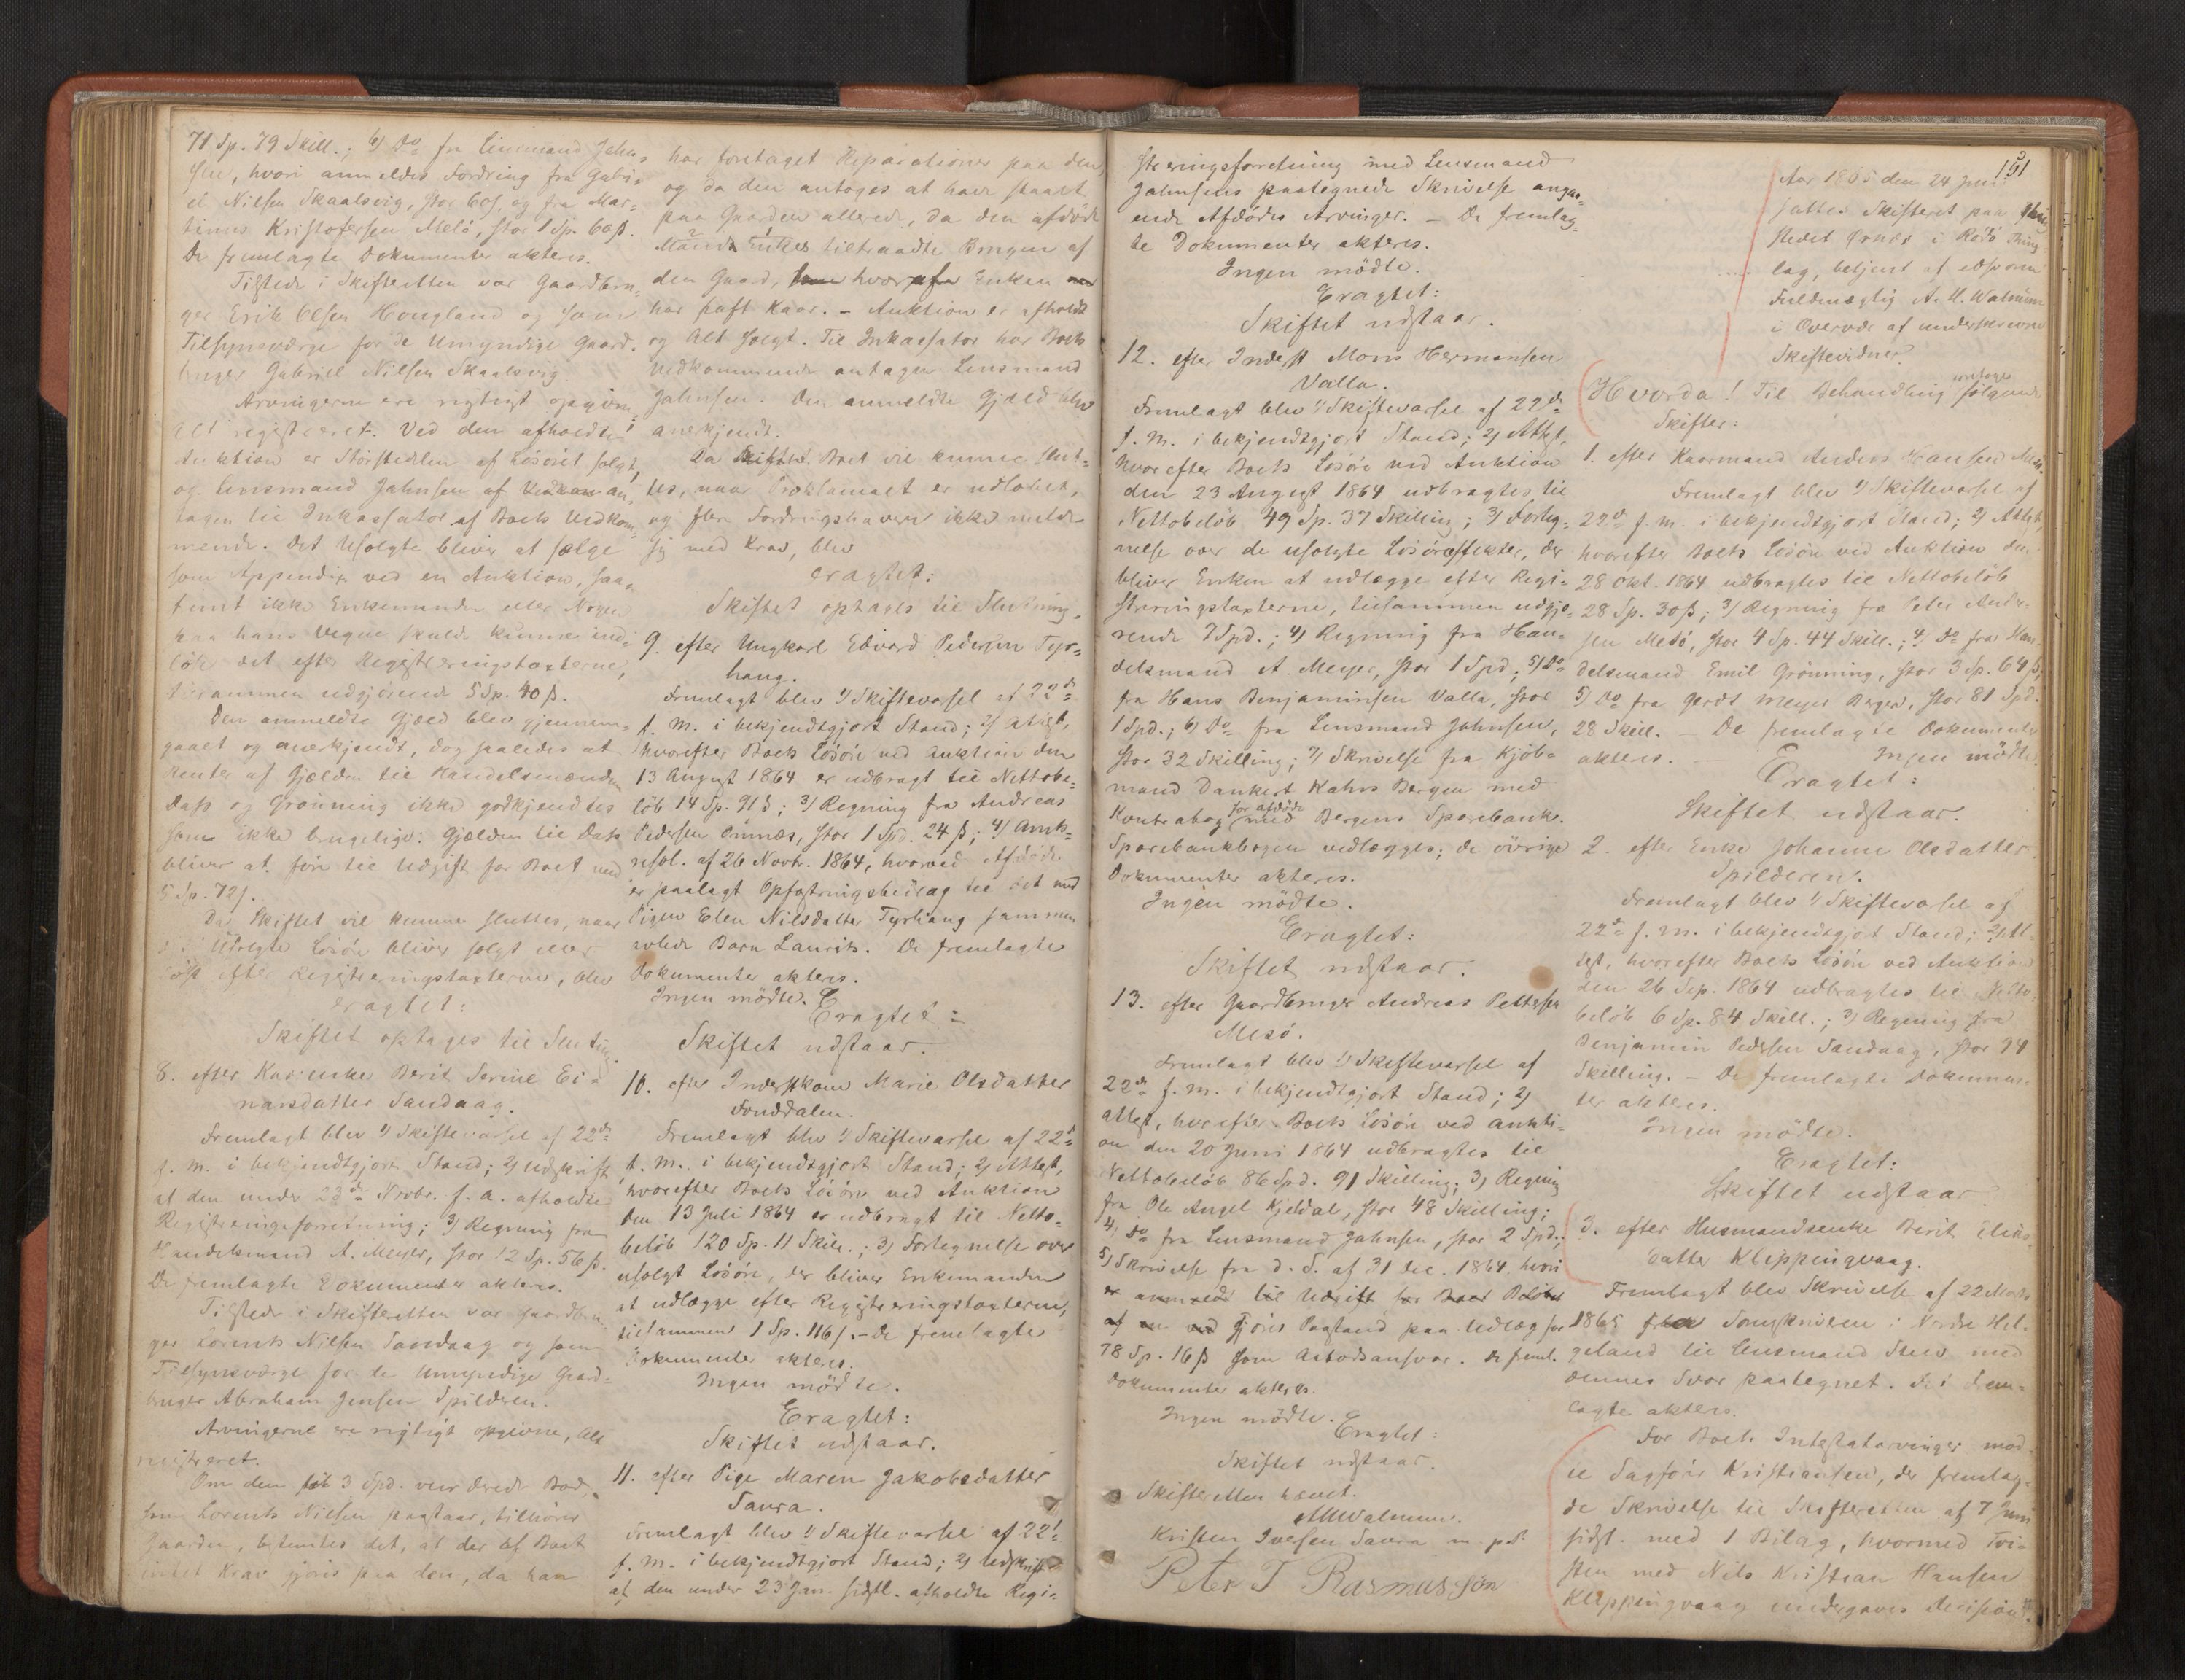 71 Sp. 79 Skill.; 6) Do fra Lensmand Jahn-
sen, hvori anmeldes Fordring fra Gabri-
el Nilsen Skaalsvig, stor 60 s, og fra Mar-
tinus Kristofersen Melö, stor 1 Sp. 60 ß.
De fremlagte Dokumenter akteres.
Tilstede i Skifteretten var Gaardbru-
ger Erik Olsen Hougland og som
Tilsynsværge for de Umyndige Gaard-
bruger Gabriel Nilsen Skaalsvig.
Arvingerne ere rigtigt opgivne,
Alt registreret. Ved den afholdte
Auktion er Störstedelen af Lösöret solgt,
og Lensmand Jahnsen af an-
tagen til Inkassator af Boets Vedkom-
mende. Det Usolgte bliver at sælge
som Appendix ved en Auktion, saa-
fremt ikke Enkemanden eller Nogen
paa hans Vegne skulde kunne ind-
löse det efter Registreringstaxterne,
tilsammen udgjörende 5 Sp. 40 ß.
Den anmeldte Gjæld blev gjennem-
gaaet og anerkjendt, dog saaledes at
Renter af Gjælden til Handelsmændene
Dass og Grönning ikke godkjendtes
som ikke brugelige. Gjælden til Dass
bliver at före til Udgift for Boet med
5 Sp. 72 s.
Da Skiftet vil kunne sluttes, naar
Usolgte Lösöre bliver solgt eller
löst efter Registreringstaxterne, blev
eragtet:
Skiftet optages til Slutning.
8. efter Kaarenke Berit Serine Ei-
narsdatter Sandaag.
Fremlagt blev 1) Skiftevarsel af 22de
f. M. i bekjendtgjort Stand; 2) Udskrift
af den under 23de Novbr. f. a. afholdte
Registreringsforretning; 3) Regning fra
Handelsmand A. Meyer, stor 12 Sp. 56 ß.
De fremlagte Dokumenter akteres.
Tilstede i Skifteretten var Gaardbru-
ger Lorents Nilsen Sandaag og som
Tilsynsværge for de Umyndige Gaard-
bruger Abraham Jensen Spilderen.
Arvingerne ere rigtigt opgivne, Alt
registreret.
Om den til 3 Spd. vurderede Bod,
som Lorents Nilsen paastaar, tilhörer
Gaarden, betinges det, at der af Boet
intet Krav gjöres paa den, da han
har foretaget Reparationer paa den,
og da den antages at have staaet
paa Gaarden allerede, da den afdöde
Enkes Mand tiltraadte Brugen af
den Gaard, hvoraf Enken
har havt Kaar. - Auktion er afholdt
og Alt solgt. Til Inkassator har Boets
Vedkommende antaget Lensmand
Jahnsen. Den anmeldte Gjæld blev
anerkjendt.
Da Boet vil kunne slut-
tes, naar Proklamaet er udlöbet,
og flere Fordringshavere ikke melde
sig med Krav, blev
eragtet:
Skiftet optages til Slutning.
9. efter Ungkarl Edvard Pedersen Tyr-
hang.
Fremlagt blev 1) Skiftevarsel af 22de
f. M. i bekjendtgjort Stand; 2) Attest,
hvorefter Boets Lösöre ved Auktion den
13 August 1864 er udbragt til Nettobe-
löb 14 Sp. 91 s; 3) Regning fra Andreas
Pedersen Önnæs, stor 1 Spd. 24 ß; 4) Amts-
resol. af 26 Novbr. 1864, hvorved Afdöde
er paalagt Opfostringsbidrag til det med
Pigen Elen Nilsdatter Tyrhang sammen
avlede Barn Laurits. De fremlagte
Dokumenter akteres.
Ingen mödte.
Eragtet:
Skiftet udstaar.
10. efter Inderstkone Marie Olsdatter
Fonddalen.
Fremlagt blev 1) Skiftevarsel af 22de
f. M. i bekjendtgjort Stand; 2) Attest,
hvorefter Boets Lösöre ved Auktion
den 13 Juli 1864 er udbragt til Netto-
belöb 120 Sp. 11 Skill.; 3) Fortegnelse over
usolgt Lösöre, der bliver Enkemanden
at udlægge efter Registreringstaxterne,
tilsammen 1 Sp. 116 s. - De fremlagte
Dokumenter akteres.
Ingen mödte.
Eragtet:
Skiftet udstaar.
11. efter Pige Maren Jakobsdatter
Saura.
Fremlagt blev 1) Skiftevarsel af 22de
f. M. i bekjendtgjort Stand; 2) Udskrift
af den under 23 Jan. sidstl. afholdte Regi-
streringsforretning med Lensmand
Jahnsens paategnede Skrivelse angaa-
ende Afdödes Arvinger. - De fremlag-
te Dokumenter akteres.
Ingen mödte.
Eragtet:
Skiftet udstaar.
12. efter Inderst Mons Hermansen
Valla.
Fremlagt blev 1) Skiftevarsel af 22de
f. M. i bekjendtgjort Stand; 2) Attest,
hvorefter Boets Lösöre ved Auktion
den 23 August 1864 udbragtes til
Nettobelöb 49 Sp. 37 Skilling; 3) Forteg-
nelse over de usolgte Lösöreeffekter, der
bliver Enken at udlægge efter Regi-
streringstaxterne, tilsammen udgjö-
rende 7 Spd.; 4) Regning fra Han-
delsmand A. Meyer, stor 1 Spd; 5) Do
fra Hans Benjaminsen Valla, stor
1 Spd.; 6) Do fra Lensmand Jahnsen,
stor 32 Skilling; 7) Skrivelse fra Kjöb-
mand Dankert Kahrs Bergen med
Kontrabog for afdöde med Bergens Sparebank.
Sparebankbogen vedlægges; de övrige
Dokumenter akteres.
Ingen mödte.
Eragtet:
Skiftet udstaar.
13. efter Gaardbruger Andreas Pettersen
Mesö.
Fremlagt blev 1) Skiftevarsel af
22de f. M. i bekjendtgjort Stand; 2)
Attest, hvorefter Boets Lösöre ved Aukti-
on den 20 Juni 1864 udbragtes til
Nettobelöb 86 Spd. 91 Skilling; 3) Regning
fra Ole Angel Kjeldal, stor 48 Skilling;
4) Do fra Lensmand Jahnsen, stor 2 Spd.;
5) Skrivelse fra d. S. af 31 Dec. 1864, hvori
er anmeldt til Udgift for Boet
af ved gjöres Paastand paa Udlæg for
78 Sp. 16 ß som Aabodsansvar. De freml.
Dokumenter akteres.
Ingen mödte.
Eragtet:
Skiftet udstaar.
Skifteretten hævet.
AMWalnum.
Kristen Iversen Saura m. p. P.
Peter J Rasmussøn
151
Aar 1865 den 24 Juni
sattes Skifteret paa Thing-
stedet Örnes i Rödö Thing-
lag, betjent af edsvoren
Fuldmægtig A. M. Walnum
i Overvær af underskrevne
Skiftevidner.
Hvorda! Til Behandling foretoges fölgende
Skifter:
1. efter Kaarmand Anders Hansen Mesö.
Fremlagt blev 1) Skiftevarsel af
22de f. M. i bekjendtgjort Stand; 2) Attest,
hvorefter Boets Lösöre ved Auktion den
28 Okt. 1864 udbragtes til Nettobelöb
28 Sp. 30 ß; 3) Regning fra Peter Ander-
sen Mesö, stor 4 Sp. 44 Skill.; 4) Do fra Han-
delsmand Emil Grönning, stor 3 Sp. 64 ß;
5) Do fra Gerdt Meyer Bergen, stor 81 Spd.
28 Skill. - De fremlagte Dokumenter
akteres. - Ingen mödte.
Eragtet:
Skiftet udstaar.
2. efter Enke Johanne Olsdatter
Spilderen.
Fremlagt blev 1) Skiftevarsel af
22de f. M. i bekjendtgjort Stand; 2) At-
test, hvorefter Boets Lösöre ved Auktion
den 26 Sep. 1864 udbragtes til Netto-
belöb 6 Sp. 84 Skill.; 3) Regning fra
Benjamin Pedersen Sandaag, stor 94
Skilling. - De fremlagte Dokumen-
ter akteres.
Ingen mödte.
Eragtet:
Skiftet udstaar
3. efter Husmandsenke Berit Elias-
datter Klippingvaag.
Fremlagt blev Skrivelse af 22 Marts
1865 fra Sorenskriveren i Nordre Hel-
geland til Lensmand Steen med
dennes Svar paategnet. Det frem-
lagte akteres.
For Boets Intestatarvinger mød-
te Sagförer Kristiansen, der fremlag-
de Skrivelse til Skifteretten af 7 Juni
sidstl. med 1 Bilag, hvormed Tvi-
sten med Nils Kristian Hansen
Klippingvaag undergaves Decision